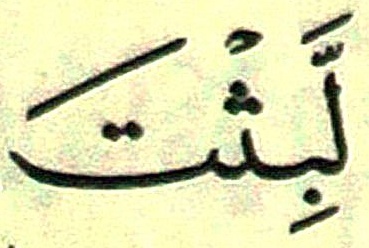 لَّبِثْتَ